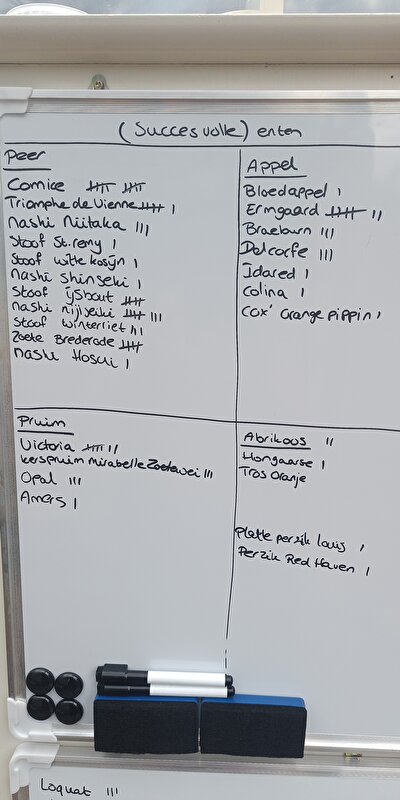 (Succesvolle) enten
Peer
Comice 卌 卌
Triomphe de Vienne 卌 I
Nashi Niitaka III
Stoof St. remy I
Stoof witte kosijn I
Nashi Shinseiki I
Stoof ijsbout 卌
Nashi nijiseiki 卌 III
Stoof winterriet III
Zoete Brederode 卌
Nashi Hosui I
Appel
Bloedappel I
Ermgaard 卌 II
Braeburn III
Delcorfe III
Idared I
Colina I
Cox' Orange pippin I
Pruim
Victoria 卌 II
kerspruim mirabelle III
Opal III
Amers I
Abrikoos II
Hongaarse I
Tros Oranje
Platte perzik louis I
Perzik Red Haven I
Loquat III